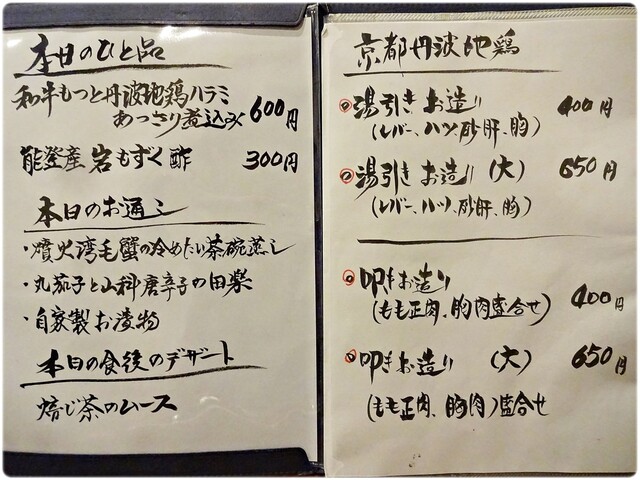 本日のひと品
和牛もつと丹波地鶏ハラミ
あっさり煮込み 600円
能登産 岩もずく酢 300円
本日のお通し
・噴火湾毛蟹の冷めたい茶碗蒸し
・丸茄子と山科唐辛子の田楽
・自家製お漬物
本日の食後のデザート
焙じ茶のムース
京都丹波地鶏
湯引きお造り 400円
(レバー、ハツ、砂肝、胸)
湯引きお造り (大) 650円
(レバー、ハツ、砂肝、胸)
叩きお造り
(もも正肉、胸肉盛合せ) 400円
叩きお造り (大) 650円
(もも正肉、胸肉)盛合せ